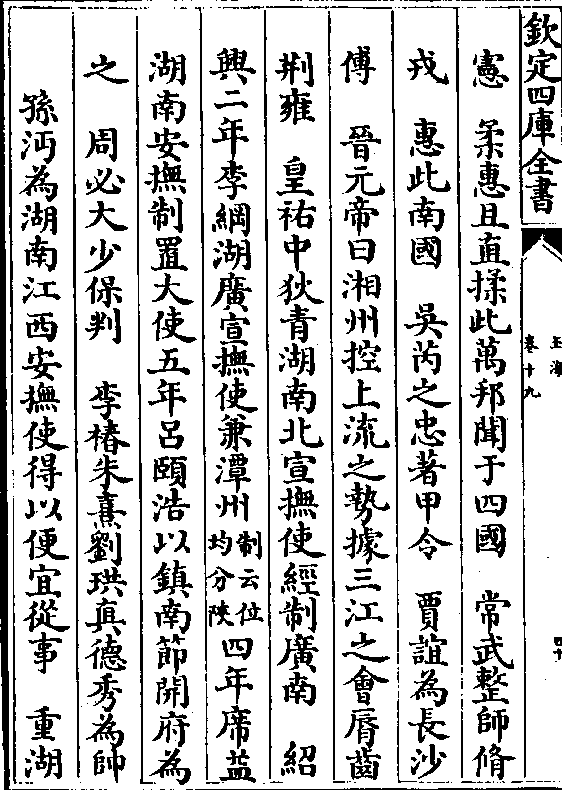 欽定四庫全書
玉海
卷十九
四十
憲 柔惠且直揉此萬邦聞于四國 常武整師脩
戎 惠此南國 吳芮之忠著甲令 賈誼為長沙
傅 晉元帝曰湘州控上流之勢據三江之會脣齒
荆雍 皇祐中狄青湖南北宣撫使經制廣南 紹
興二年李綱湖廣宣撫使兼潭州制云位均分陜四年席益
湖南安撫制置大使五年呂頤浩以鎮南節開府為
之 周必大少保判 李椿朱熹劉珙真德秀為帥
孫沔為湖南江西安撫使得以便宜從事 重湖